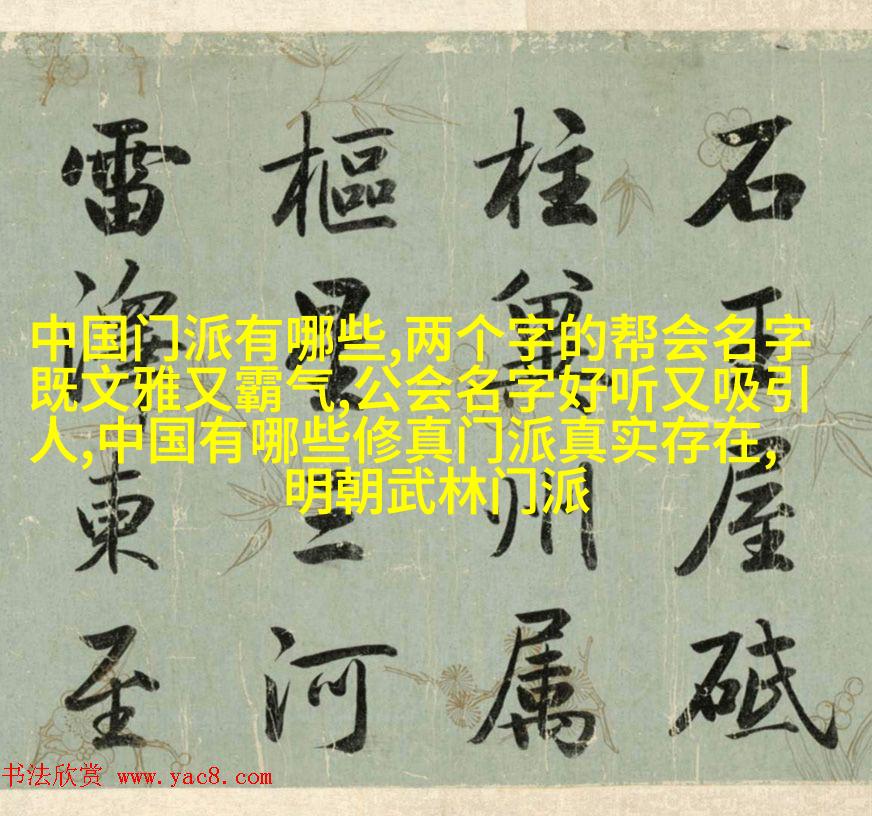 石王屋砥
柱冀州属
樞星三河
雷澤東至
中国门派有哪些,两个字的帮会名字
既文雅又霸气,公会名字好听又吸引
人,中国有哪些修真门派真实存在,
明朝武林门派
书法欣赏 www.yac8.com